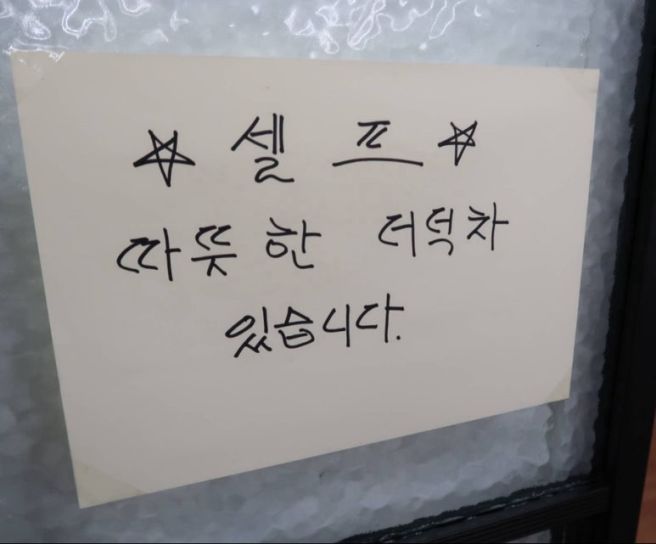 ☆ 셀 프 ☆
따뜻한 더덕차
있습니다.